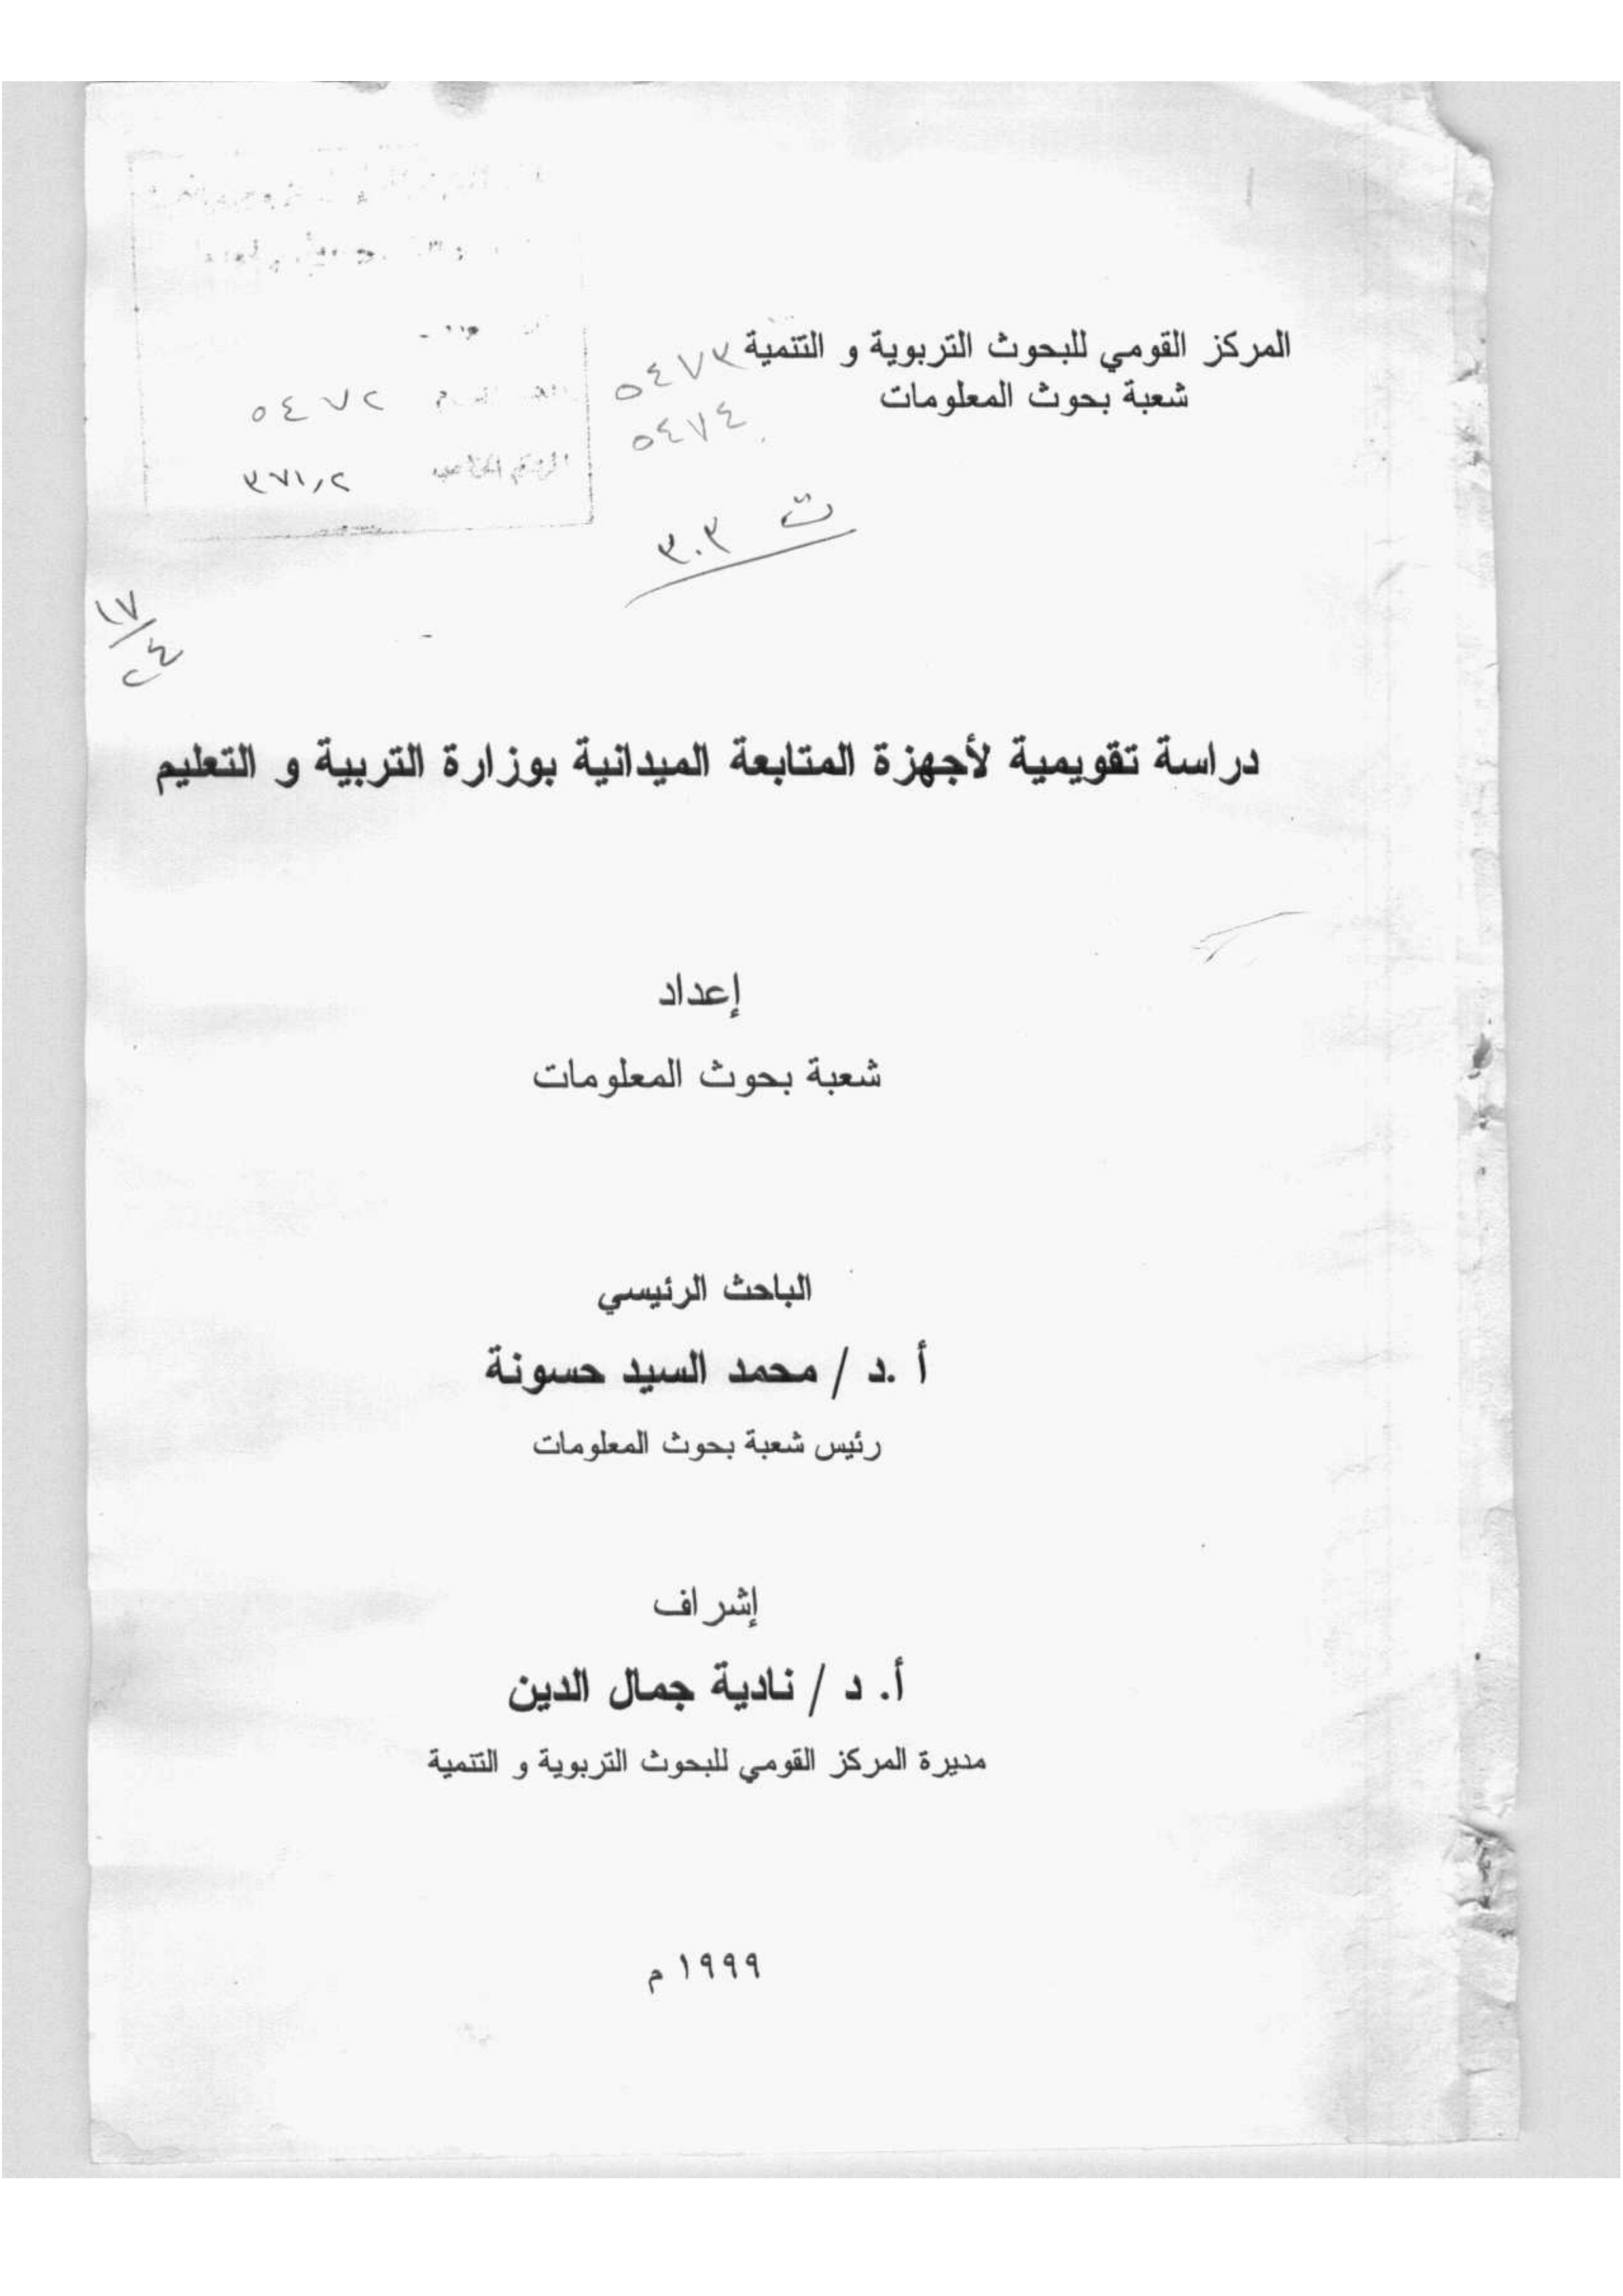 المركز القومي للبحوث التربوية و التنمية
شعبة بحوث المعلومات
٥٤٧٣
٥٤٧٤
٥٤٧٢
الرقم الخاص ٣٧١,٢
ت ٣٠٣
١٧/٢٤
دراسة تقويمية لأجهزة المتابعة الميدانية بوزارة التربية و التعليم
إعداد
شعبة بحوث المعلومات
الباحث الرئيسي
أ .د / محمد السيد حسونة
رئيس شعبة بحوث المعلومات
إشراف
أ. د / نادية جمال الدين
مديرة المركز القومي للبحوث التربوية و التنمية
١٩٩٩ م